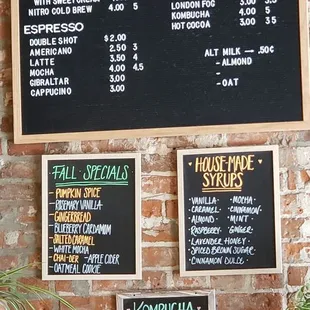 WITH SWEET CREAM
NITRO COLD BREW 4.00 5
ESPRESSO
DOUBLE SHOT $2.00
AMERICANO 2.50 3
LATTE 3.50 4
MOCHA 4.00 4.5
GIBRALTAR 3.00
CAPPUCINO 3.00
LONDON FOG 3.00 3.5
KOMBUCHA 4.00 5
HOT COCOA 3.00 3.5
ALT MILK → .50¢
- ALMOND
-
- OAT
FALL SPECIALS
- PUMPKIN SPICE
- ROSEMARY VANILLA
- GINGERBREAD
- BLUEBERRY CARDAMUM
- SALTED CARAMEL
- WHITE MOCHA
- CHAI-DER - APPLE CIDER
- OATMEAL COOKIE
HOUSE-MADE
SYRUPS
- VANILLA - MOCHA
- CARAMEL - CINNAMON
- ALMOND - MINT
- RASPBERRY - GINGER
- LAVENDER HONEY
- SPICED BROWN SUGAR
- CINNAMON DULCE
KOMBUCHA